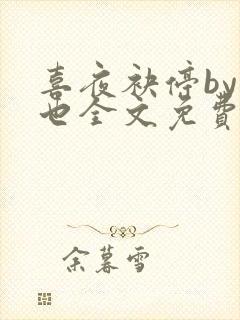 喜夜袂停by
也全文免費
余暮雪